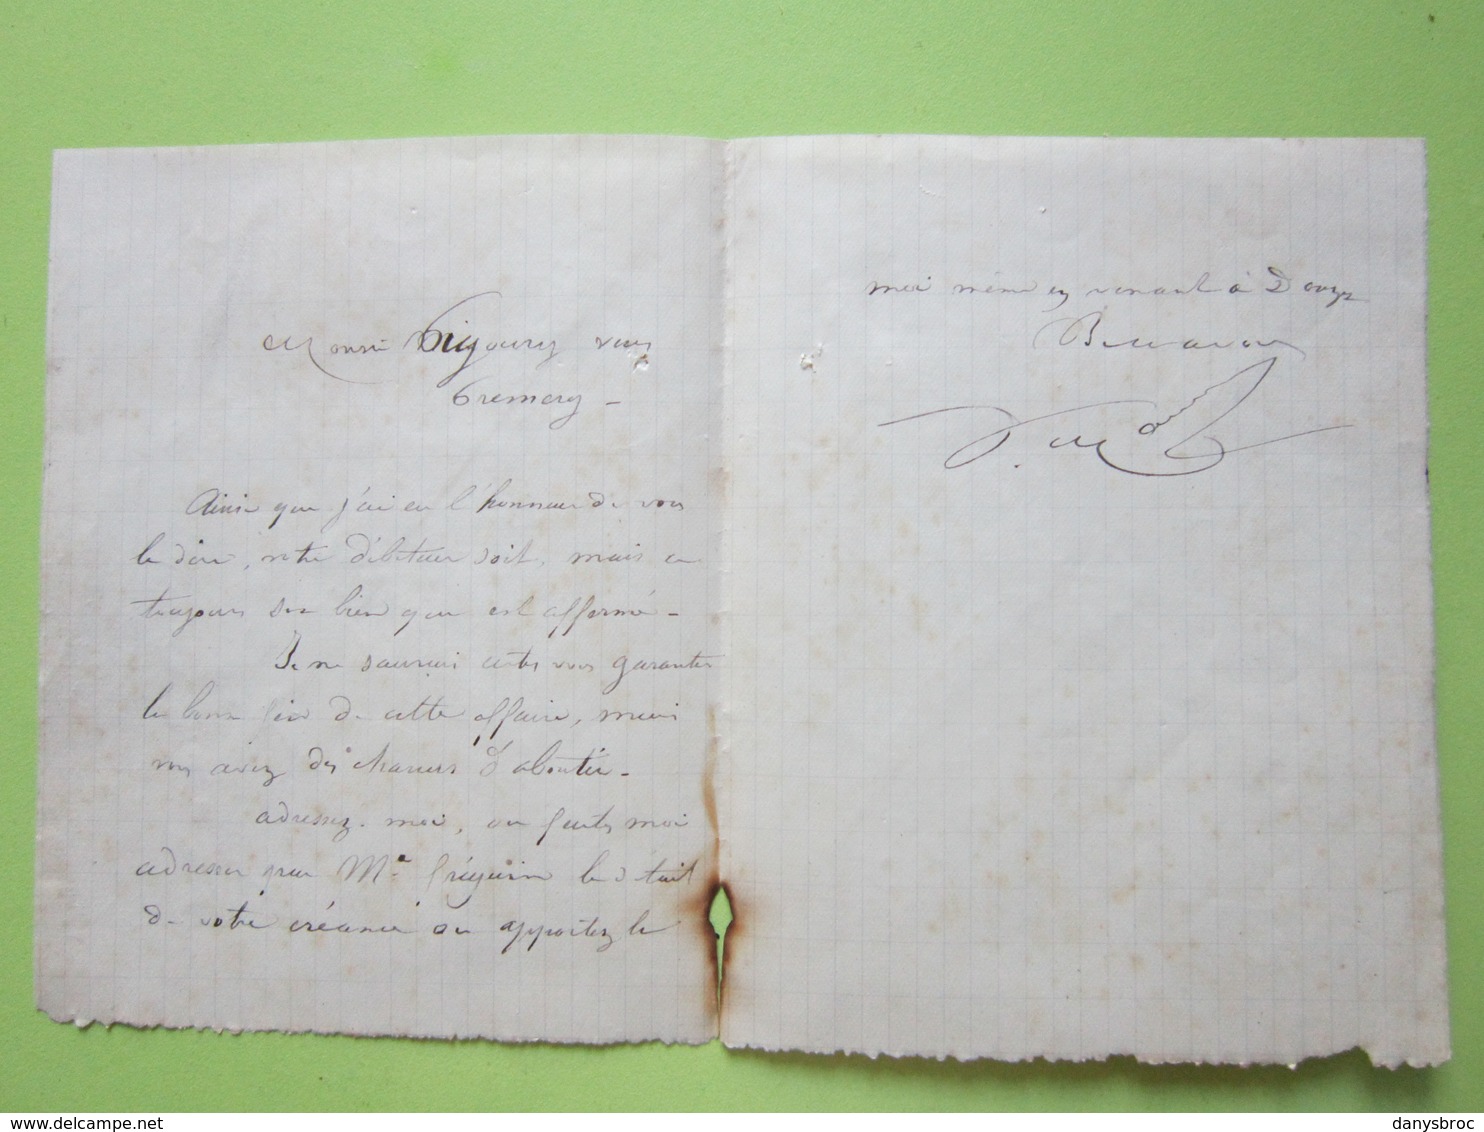 Monsieur
Ainsi que j'ai eu l'honneur de vous
le dire, votre débiteur doit, mais a
toujours son bien qui est affermé -
Je ne saurais certes vous garantir
la bonne fin de cette affaire, mais
vous avez des chances d'aboutir -
adressez-moi, ou faites moi
adresser par Me le détail
de votre créance ou apportez le
moi même en venant à Donzy
danysbroc